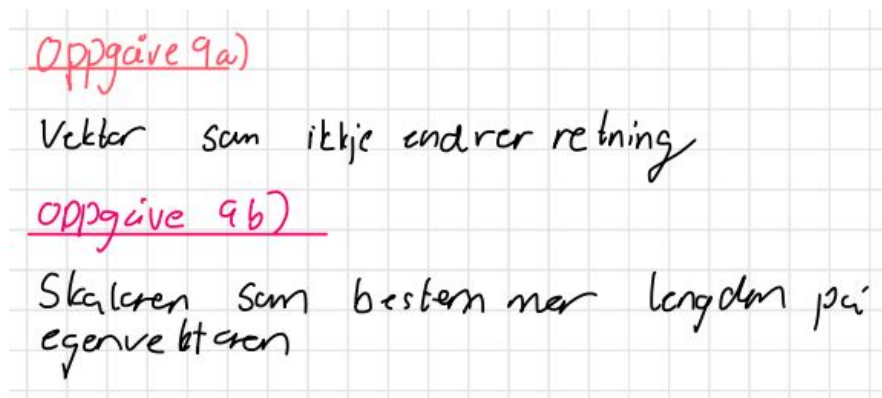 Oppgåve 9a)
Vektor som ikkje endrer retning
Oppgåve 9b)
Skalaren som bestemmer lengden på
egenvektoren